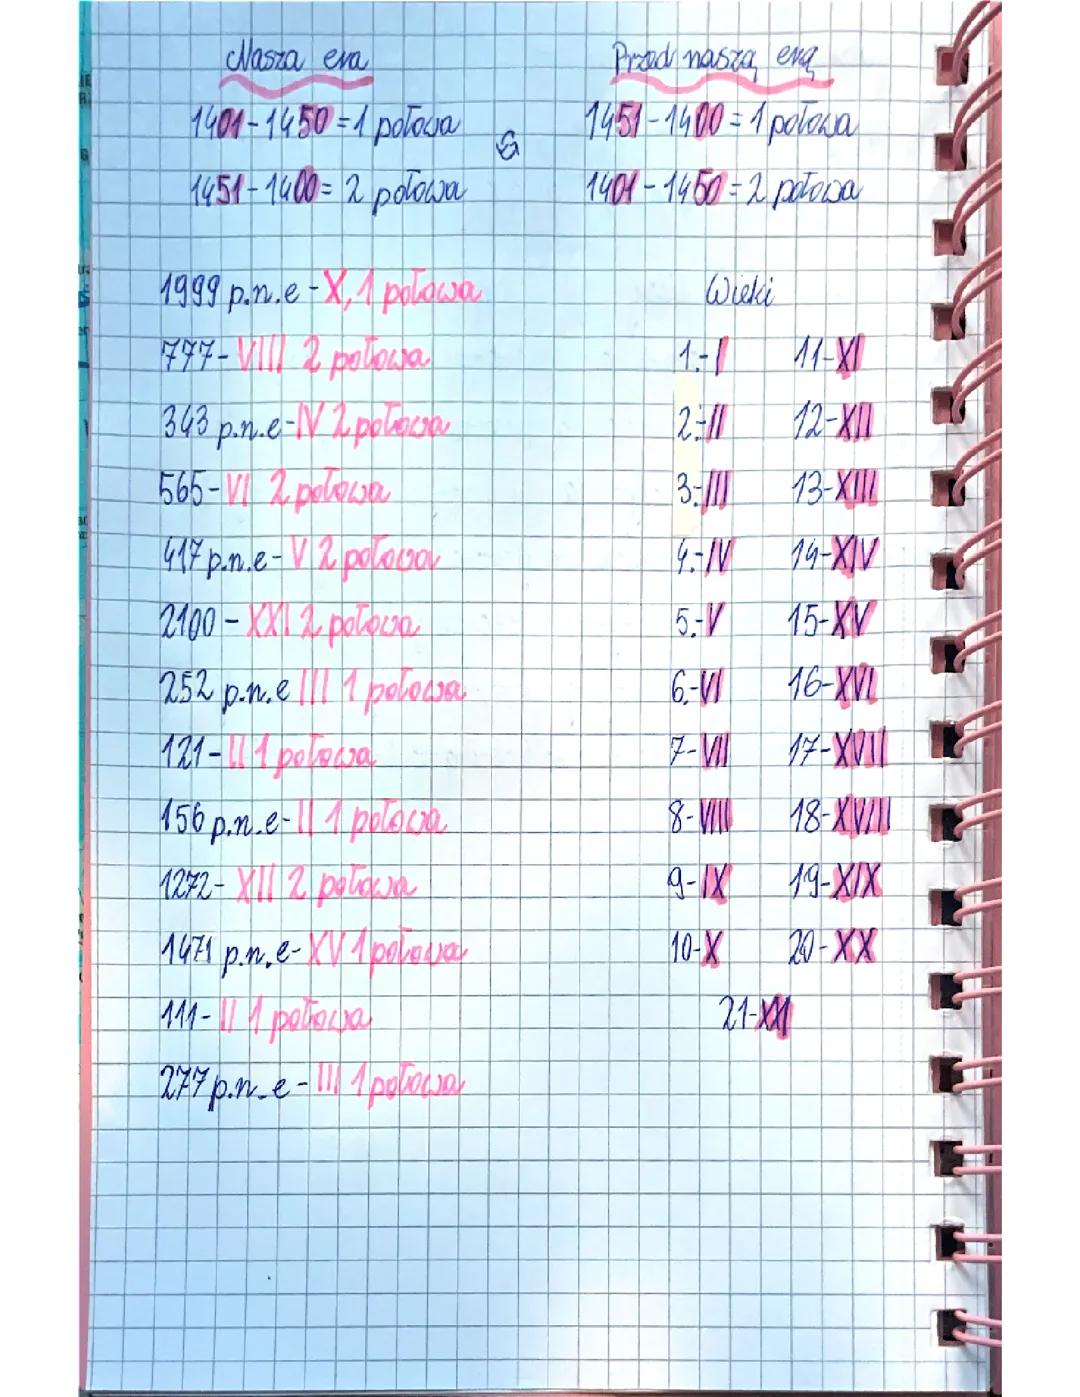 Nasza era
1401-1450=1 połowa
1451-1400= 2 połowa
Przed naszą erą
1451-1400=1 połowa
1401-1450=2 połowa
1999 p.n.e -X, 1 połowa
777- VIII 2 połowa
343 p.n.e-IV 2 połowa
565- VI 2 połowa
417 p.n.e- V 2 połowa
2100 - XXI 2 połowa
252 p.n.e III 1 połowa
121- II 1 połowa
156 p.n.e- II 1 połowa
1272- XII 2 połowa
1471 p.n.e- XV 1 połowa
111- II 1 połowa
277 p.n.e - III 1 połowa
Wieki
1.-I 11-XI
2.-II 12-XII
3.-III 13-XIII
4.-IV 14-XIV
5.-V 15-XV
6.-VI 16-XVI
7-VII 17-XVII
8-VIII 18-XVIII
9-IX 19-XIX
10-X 20-XX
21-XXI